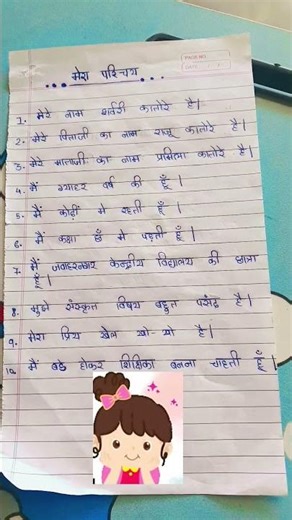 मेरा परिचय
1. मेरे नाम शर्वरी कातोरे है।
2. मेरे पिताजी का नाम राजू कातोरे है।
3. मेरे माताजी का नाम प्रमिला कातोरे है।
4. मैं ग्यारह वर्ष की हूँ।
5. मैं कोढ़ी मे रहती हूँ।
6. मैं कक्षा छँ मे पढ़ती हूँ।
7. मैं जवाहरनगर केन्द्रीय विद्यालय की छात्रा
हूँ।
8. मुझे संस्कृत विषय बहुत पसंद है।
9. मेरा प्रिय खेल खो-खो है।
10. मैं बडे होकर शिक्षिका बनना चाहती हूँ।